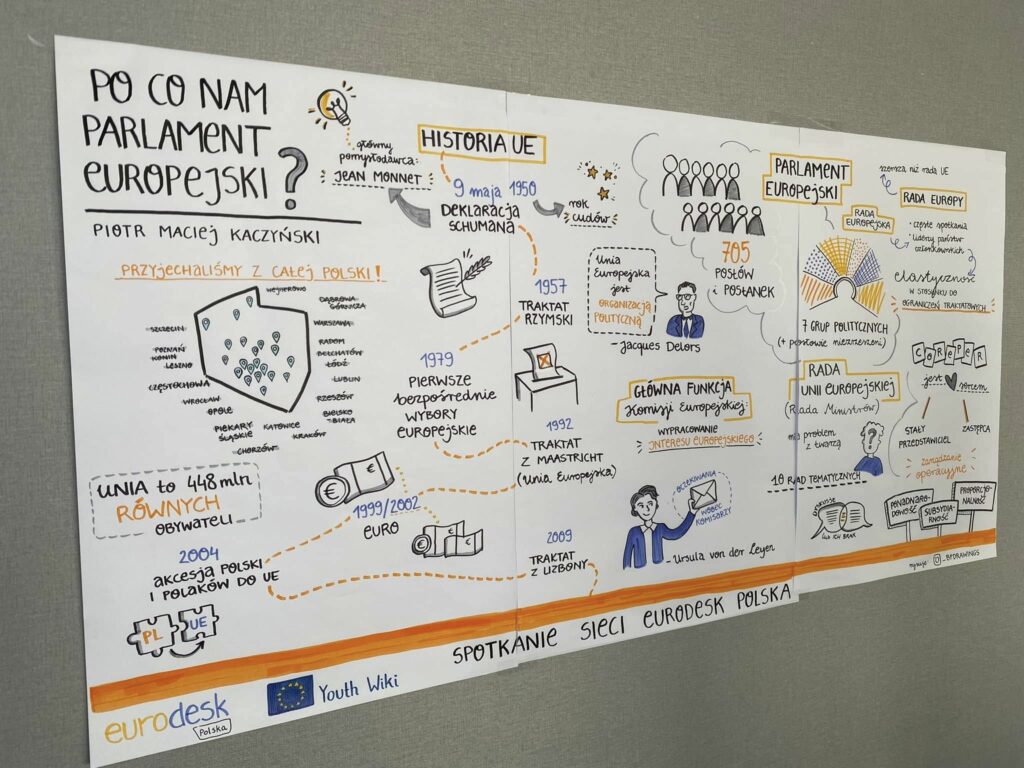 PO CO NAM
PARLAMENT
EUROPEJSKI?
PIOTR MACIEJ KACZYŃSKI
PRZYJECHALIŚMY Z CAŁEJ POLSKI!
WEJHEROWO
DĄBROWA
GÓRNICZA
SZCZECIN
WARSZAWA
POZNAŃ
RADOM
KONIN
BEŁCHATÓW
LESZNO
ŁÓDŹ
CZĘSTOCHOWA
LUBLIN
WROCŁAW
RZESZÓW
OPOLE
BIELSKO
BIAŁA
PIEKARY
ŚLĄSKIE
KATOWICE
KRAKÓW
CHORZÓW
UNIA to 448 mln
RÓWNYCH
OBYWATELI
główny
pomysłodawca:
JEAN MONNET
HISTORIA UE
9 maja 1950
DEKLARACJA
SCHUMANA
rok
cudów
1957
TRAKTAT
RZYMSKI
1979
PIERWSZE
bezpośrednie
WYBORY
EUROPEJSKIE
1992
TRAKTAT
Z MAASTRICHT
(Unia Europejska)
€
€
1999/2002
EURO
2004
akcesja POLSKI
i POLAKÓW DO UE
PL UE
2009
TRAKTAT
Z LIZBONY
Unia
Europejska
jest
ORGANIZACJĄ
POLITYCZNĄ
- Jacques Delors
GŁÓWNA FUNKCJA
Komisji Europejskiej:
WYPRACOWANIE
INTERESU EUROPEJSKIEGO
OCZEKIWANIA
WOBEC
KOMISARZY
- Ursula von der Leyen
PARLAMENT
EUROPEJSKI
705
POSŁÓW
i POSŁANEK
7 GRUP POLITYCZNYCH
(+ posłowie niezrzeszeni)
szersza niż rada UE
RADA EUROPY
RADA
EUROPEJSKA
• częste spotkania
• liderzy państw
członkowskich
elastyczność
W STOSUNKU DO
OGRANICZEŃ TRAKTATOWYCH
RADA
UNII EUROPEJSKIEJ
(Rada Ministrów)
ma problem
z twarzą
?
10 RAD TEMATYCZNYCH
COREPER
jest sercem
STAŁY
PRZEDSTAWICIEL
ZASTĘPCA
zarządzanie
operacyjne
dyskusje
lub ich brak
PONADNARO-
DOWOŚĆ
SUBSYDIA-
RNOŚĆ
PROPORCJO-
NALNOŚĆ
rysuje _BPDRAWINGS
SPOTKANIE SIECI EURODESK POLSKA
eurodesk
Polska
Youth Wiki